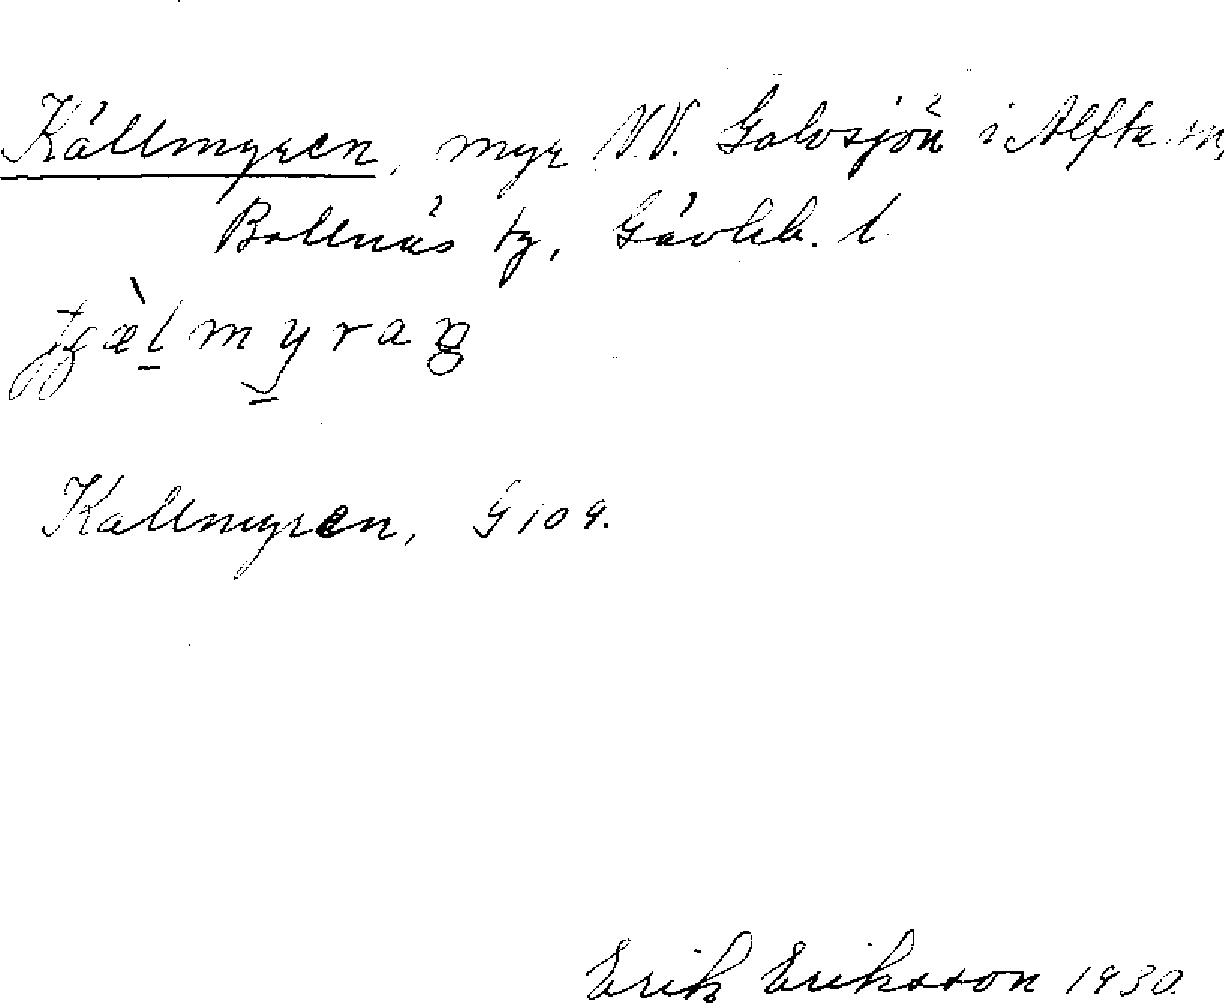 Källmyren, myr N.V. Galvsjön i Alfta sn,
Bollnäs tg, Gävleb. l.
Källmyren, G 109.
Erik Eriksson 1930.